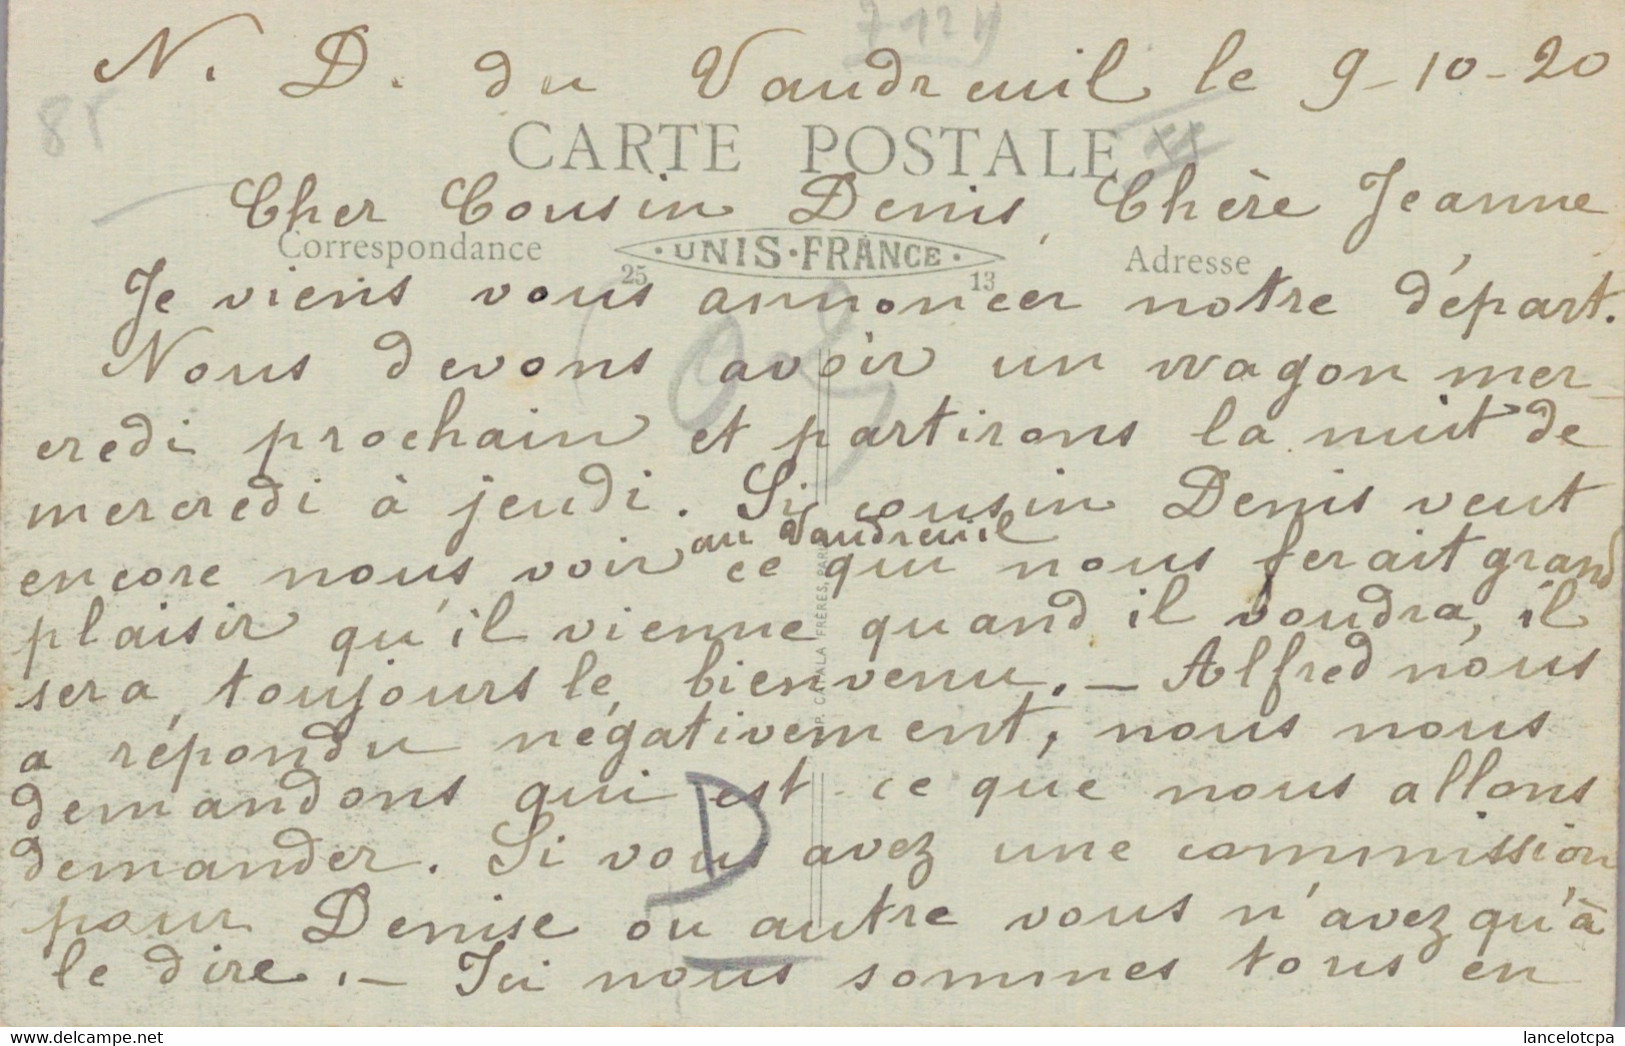 7-12 y
N. D. du Vaudreuil le 9-10-20
85
CARTE POSTALE
Cher Cousin Denis, Chère Jeanne
Correspondance
UNIS-FRANCE
25
13
Adresse
Je viens vous annoncer notre départ.
Nous devons avoir un wagon mer-
credi prochain et partirons la nuit de
mercredi à jeudi. Si cousin Denis veut
encore nous voir au Vaudreuil ce qui nous ferait grand
plaisir qu'il vienne quand il voudra, il
sera toujours le bienvenu. - Alfred nous
a répondu négativement, nous nous
demandons qui est-ce que nous allons
demander. Si vous avez une commission
pour Denise ou autre vous n'avez qu'à
le dire. - Ici nous sommes tous en
IMP. CATALA FRÈRES, PARIS
D
delcampe.net
lancelotcpa